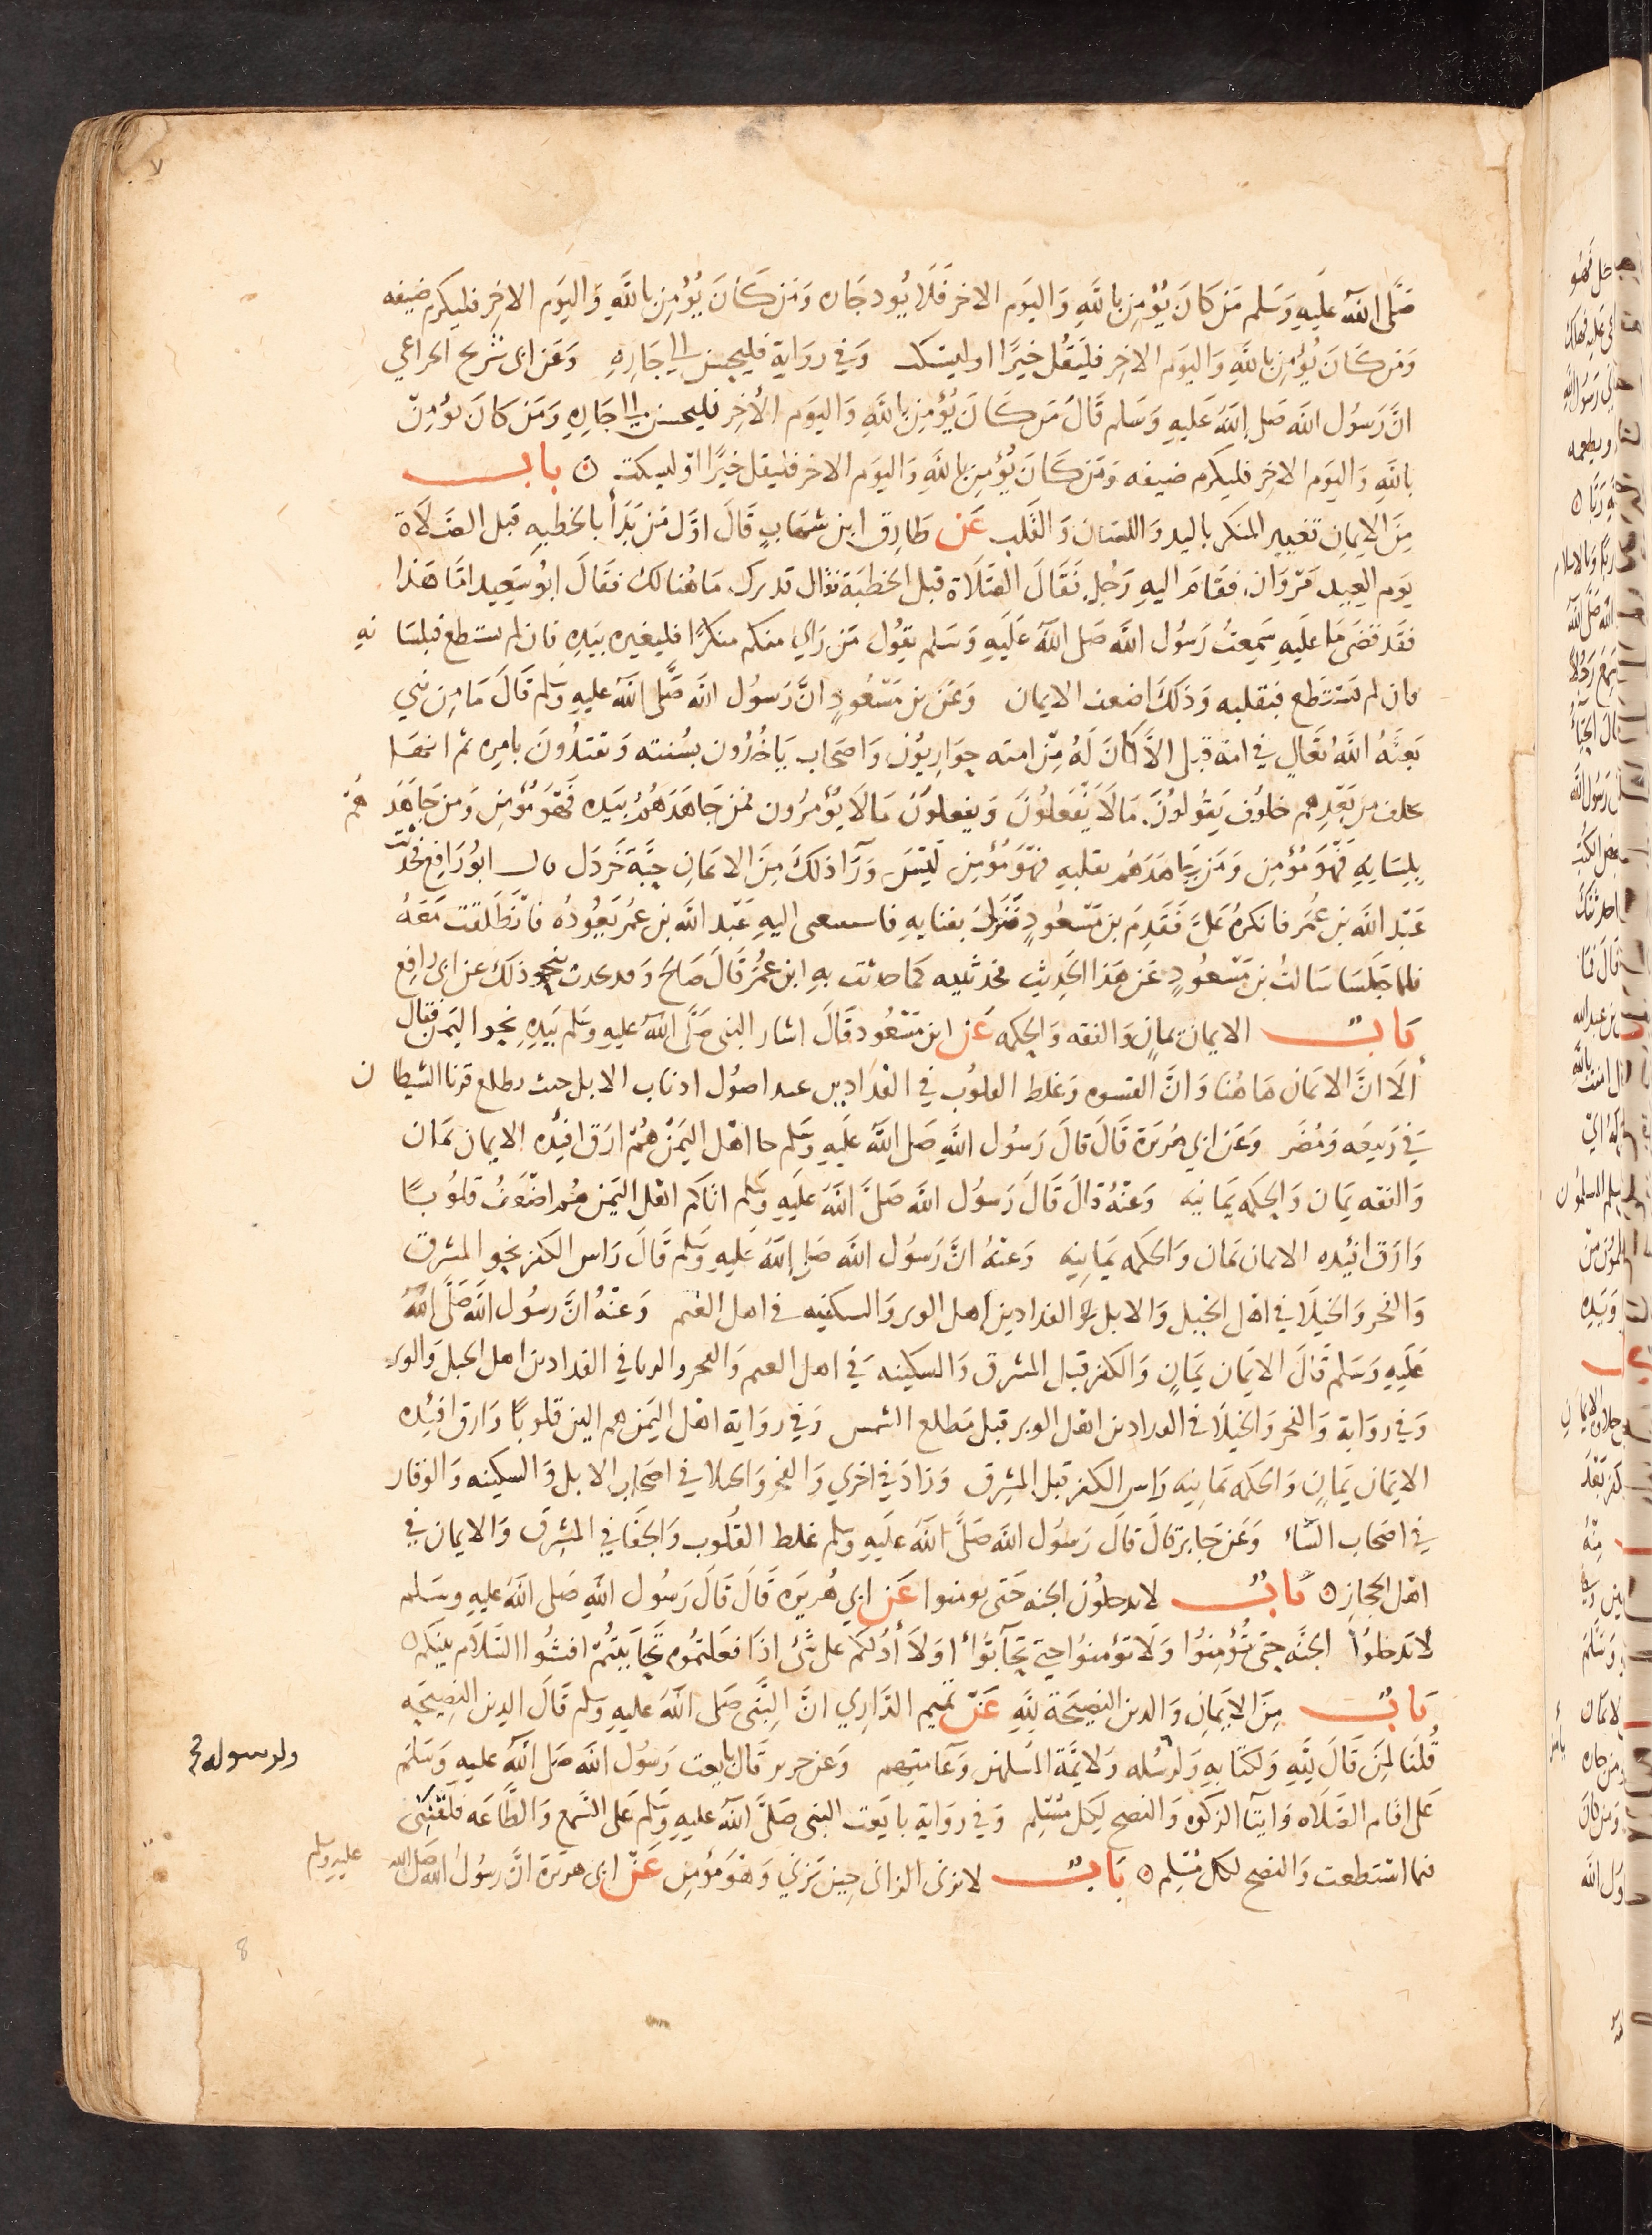 صَلَّى اللَّهُ عَلَيهِ وَسَلم مَن كَانَ يُؤْمِن باللَّهِ وَاليَوم الاخر فَلَا يُود جَاره وَمَن كَانَ يُؤْمِن باللَّهِ وَاليَوم الاخِر فليكرم ضيفه
وَمَن كَانَ يُؤمِن باللَّهِ وَاليَوم الاخِر فليَقُل خيرًا اوليسكت وَفي روَاية فليحسن الي جَارِهِ وَعَن ابي شريح الخزاعي
انَّ رَسُول الله صَلى اللَّهُ عَلَيهِ وَسَلم قَالَ مَن كَانَ يُؤْمِن باللَّهِ وَاليَوم الأخِر فليحسن الي جَارِهِ وَمَن كَانَ يؤمِن
باللَّهِ وَاليَوم الاخِر فليكرم ضيفه وَمَن كَانَ يُؤمِن باللَّهِ وَاليَوم الاخر فليقل خيرًا اوليسكت ن باب
مِنَ الايمانِ تغيير المنكر باليد وَاللسَان وَالقَلب عَن طَارِق ابن شهَابٍ قَالَ اوَّل مَن بَدَأ بالخطبهِ قبل الصَلَاة
يَوم العِيد مَروَان فقَامَ اليهِ رَجُل فَقَالَ الصَّلَاة قبل الخطبَة فقال قد ترك مَا هُنالك فقَالَ ابُو سَعِيد امَّا هَذا
فقَد قَضَى مَا علَيهِ سَمِعتُ رَسُول الله صَلى اللَّهُ عَلَيهِ وَسَلم يقول مَن رَاي منكم منكرًا فليغيره بيَدِهِ فان لم يستطع فبلسَا نهِ
فان لم يَسْتَطع فبقلبه وَذَلكَ اضعف الايمان وَعَن بن مَسْعُودٍ انَّ رَسُول الله صَلَّى اللَّهُ عليهِ وَسَلم قَالَ مَا مِن نبي
بَعَثَهُ اللَّهُ تعَالي في امة قبلي الاَّ كَانَ لَهُ مِن امته حوَارِيون وَاصحَاب يَاخُذُون بسُنته وَيقتدُونَ بامره ثم انهَا
تخلف من بَعْدِهم خلوف يَقُولُونَ مَالَا يَفْعَلُونَ وَيفعلونَ مَالَا يُؤمَرُون فمَن جَاهَدَهُم بيَده فَهوَ مُؤمِن وَمن جَاهَدَ هُم
بلِسَانِهِ فَهوَ مُؤمِن وَمَن جَاهَدَهُم بقلبهِ فهوَ مُؤمِن لَيسَ وَرَآ ذلكَ مِنَ الايمَانِ حَبَّة خَردَل قال ابُو رَافِع فحدثت
عَبْد اللَّه بن عُمَر فانكرهُ عَليَّ فَقَدِمَ بن مَسْعُودٍ فَنَزلَ بفنايهِ فاستتبعني اليهِ عَبْد اللَّه بن عُمر يَعُودُه فَانطَلَقت مَعَهُ
فلما جَلَسَنا سَالتُ بن مَسْعُودٍ عَن هَذا الحَدِيث فحدثنيه كما حدثت بهِ ابن عمُر قَالَ صَالح وَقد تحدث بنحو ذلكَ عن ابي رَافِع
بَابُ الايمان يمانٍ وَالفقه وَالحِكمه عَن ابن مَسْعُود قَالَ اشار النبي صَلَّى اللَّهُ عليهِ وسَلم بيَدِهِ نحو اليَمن فقال
ألَا انَّ الايمَان هَا هُنا وَانَّ القسوه وَغلط القلوُب في الفدادين عند اصُول اذناب الابل حيث يطلع قرنا الشيطا ن
في رَبيعَه وَمُضَر وَعَن ابي هُرَيرَة قَالَ قالَ رَسُول اللَّهِ صَلى اللَّهُ علَيهِ وسَلم جا اهْل اليَمن هُم ارَق افيدَه الايمان يمَان
وَالفقه يمَان وَالحِكمه يمَانيه وَعَنهُ قالَ قَالَ رَسُول الله صَلَّى اللَّهُ عَلَيهِ وَسَلم اتاكم اهْل اليَمن هُم اضْعَفُ قلوُبًا
وَارَق افيَده الايمان يمَان وَالحِكمه يمَانيه وَعَنهُ انَّ رَسُول اللَّه صَلى اللَّهُ عَليهِ وَسَلم قَالَ رَاس الكفر نحو المشرق
وَالفخر وَالخيلَا في اهْل الخيل وَالابل وَ الفدادين اهل الوبر وَالسكينه في اهل الغنم وَعَنهُ انَّ رسُول اللَّه صَلَّى اللَّهُ
عَلَيهِ وَسَلَم قَالَ الايمَان يمَانٍ وَالكفر قبل المشرق وَالسكينه في اهل الغنم وَالفخر والريا في الفدادين اهل الخيل وَالوبر
وَفي روَاية وَالفخر وَالخيلَا في الفدادين اهْل الوبر قبل مَطلع الشمس وَفي روَاية اهْل اليَمن هم الين قلوبًا وَارق افئِده
الايمَان يمَانٍ وَالحِكمه يمَانيه رَاس الكفر قبل المشِرق وَزادَ في اخري وَالفخر وَالخيلا في اصحَاب الابل وَالسكينه وَالوقار
في اصحَاب الشاء وَعَن جَابر قالَ قالَ رَسُول اللَّه صَلَّى اللَّهُ علَيهِ وسَلم غلط القُلوب وَالجفا في المشِرق وَالايمان في
اهل الحجاز ن بَابُ لا تدخلوُن الجنه حَتى تومنوا عَن ابي هُريرَه قَالَ قَالَ رَسُول اللَّهِ صَلى اللَّهُ عليهِ وسَلم
لا تدخلوُا الجنَّه حَتى تُؤمِنوُا وَلَا تؤمنوُا حتي تحَآبُّوا أوَلَا أدُلكم على شئ اذا فعَلتموُه تحَابَبتُم افشُوا السَّلَام بينكم ن
بَابُ مِنَ الايمَانِ وَالدين النصِيحَة للَّهِ عَن تمِيم الدَّارِي انَّ النَّبي صَلى اللَّهُ عليهِ وسلم قَالَ الدِين النصِيحَه
قُلنَا لمَن قَالَ للَّهِ وَلكتَابهِ وَلرسُله وَلايمَّة المُسلمين وَعَآمتِهم وَعَن جرير قَال بايعت رَسُول اللَّه صَلى اللَّهُ عليهِ وَسَلم
ولرسوله
عَلى اقام الصَّلَاه وَايتآ الزكوه وَالنصح لكل مُسْلِم وَفي روَاية بايَعت النبي صَلَّى اللَّهُ عليهِ وسَلم عَلى السَّمع وَالطَّاعَه فلقنني
فيما اسْتطعت وَالنصح لكل مُسْلِم ن بَابُ لا يزني الزاني حين يَزني وَهُوَ مؤمِن عَن ابي هريرَة انَّ رسُول اللَّه صَلى اللَّه عليه وسلم
8